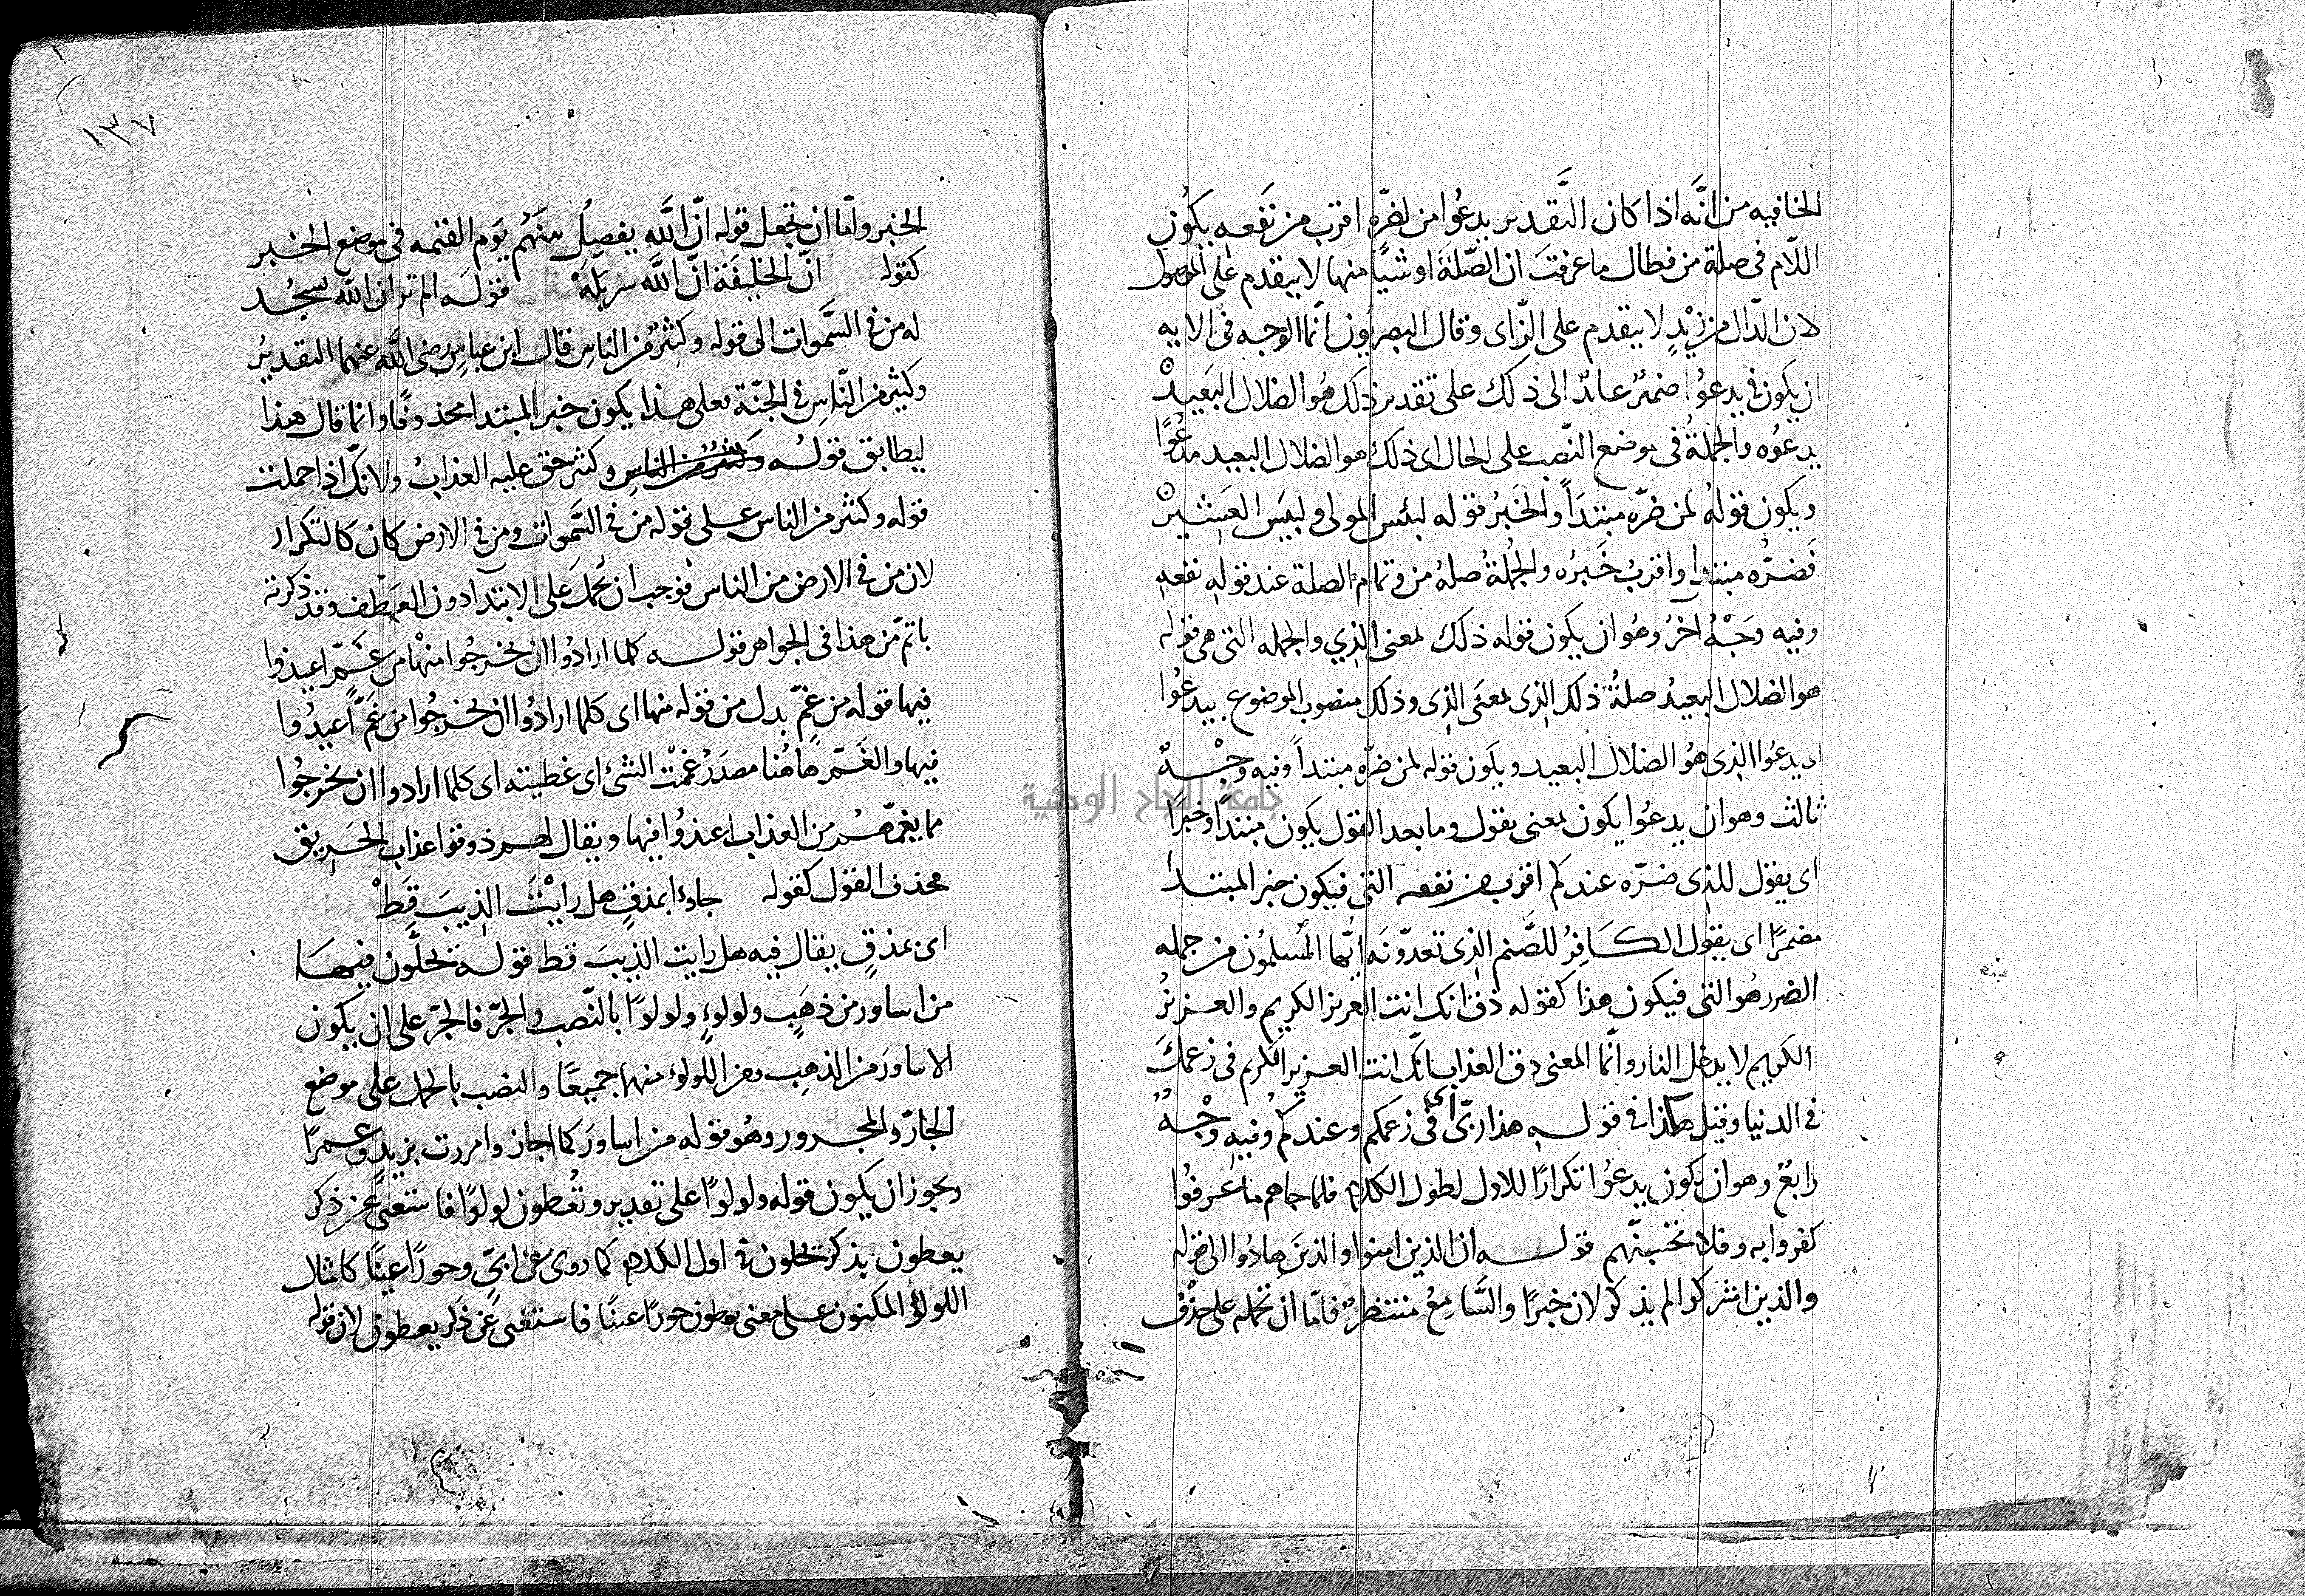 الخافيه من انَّه اذا كان التَّقدير يدعُوا من لضرّه اقرب من نَفعه يكُون
اللّام فى صلة من فطال ما عرفتَ ان الصّلةَ او شيًا منها لا يتقدم على الموصول
لان الدّال من زيْدٍ لا يتقدم على الزّاى وقال البصريّون انّما الوجه فى الايه
ان يكون فى يدعُوا ضميرٌ عائدٌ الى ذلك على تقدير ذلك هُو الضلال البَعيدْ
يدعُوه والجملةُ فى موضع النّصب على الحال اى ذلك هو الضلال البعيد مدعُوًّا
ويكون قولهُ لمن ضرّه مبتدَاً والخَبرُ قوله لبئس المولى ولبيَس العَشيرْ
فَضرّه مبتدا واقربُ خَبرُه والجُملةُ صلهُ من وتمام الصلة عند قولهِ نفعهِ
وفيه وَجْهٌ آخرُ وهُو ان يكون قوله ذلك بمعنى الذي والجمله التى هى قوله
هو الضلال البعيدُ صلةُ ذلك الذى بمعنَى الذِى وذلك منصوب الموضوع بيدعُوا
اى يدعُوا الذِى هُو الضلال البعيد ويكون قوله لمن ضرّه مبتداً وفيه وجْهٌ
ثالث وهو ان يدعُوا يكون بمعنى يقول وما بعد القول يكون مبتداً وخبرًا
اى يقول للذى ضرّه عندكم اقرب من نفعه التى فيكون خبر المبتدا
مضمرًا اى يقول الكَافِرُ للصَّنم الذِى تعدّونَه ايُّها المُسلمُون من جمله
الضرر هو التى فيكون هذا كقوله ذق انك انت العزيز الكريم والعزيزُ
الكريم لا يدخل النار وانّما المعنى ذق العذاب انّك انت العزيز الكريم فى زعمكَ
فى الدنيا وقيل هكذا فى قوله هذا ربّى اى فى زعمكم وعندكم وفيهِ وجْهٌ
رابعٌ وهو ان يكون يدعُوا تكرارًا للاول لطول الكلام فلما جاهم ما عَرفُوا
كفروا به وفلا تحسبنّهم قوله ان الذين امنوا والذين هادُوا الى قوله
والذين اشركوا لم يذكر لان خبرًا والسَّامعُ منتظرٌ فامّا ان تحمله على حذْف
١٣٧
الخبر وامّا ان تجعل قوله انّ اللَّه يفصِلُ بينَهُم يَوم القيمه فى موضع الخبر
كقوله انّ الخليفَة انّ اللَّه سربلهْ قولَه الم تر ان اللّه يسجُد
له من فى السَّموات الى قوله وكثيرٌ من الناسِ قال ابن عباسٍ رضى اللَّه عنهما التقديرُ
وكثير من النّاسِ فى الجنّة فعلى هذا يكون خبر المبتدا محذوفًا وانما قال هذا
ليطابق قولُه وكثيرٌ من الناس وكثير حق عليه العذابُ ولانكّ اذا حملت
قوله وكثير من الناس على قوله من فى السَّموات ومن فى الارض كان كالتكرار
لان من فى الارض من الناس فوجب ان يُحمل عَلى الابتدا دون العَطف وقد ذكرته
باتمّ من هذا فى الجواهر قوله كلما ارادُوا ان يخرجُوا منهْا من غَمّ اعيدوا
فيها قوله من غمّ بدل من قوله منها اى كلما ارادُوا ان يخرجُوا من غمّ اعيدُوا
فيها والغَمّ هاهُنا مصدَرُ غممْت الشئ اى غطيته اى كلما ارادوا ان يخرجُوا
مما يغمّهُم من العذاب اعيدُوا فيها ويقال لهم ذوقوا عذاب الحَريق
فحذف القول كقوله جاءُا بمذقٍ هل رايْتَ الذِيبَ قطْ
اى بمذقٍ يقال فيه هل رايت الذيبَ قط قوله يحلَّون فيهَا
من اساور من ذهَبٍ ولولوءٍ ولولوًا بالنّصب والجَرّ فالجرّ على ان يكون
الاساورَ من الذهبِ ومن اللولوء منهما جميعًا والنصب بالحمل على موضع
الجارّ والمجرور وهُو قوله من اساورَ كما اجاز وامررت بزيدٍ وعمرًا
ويجوز ان يكون قوله ولولوًا على تقدير ويُعْطون لولوًا فاستغنى عن ذكر
يعطون بذكر يحلون فى اول الكلام كما روى عن ابىّ وحورًا عينًا كامثال
اللولؤ المكنون على معنى يعطون حورًا عينًا فاستغنى عن ذكر يعطون لان قوله